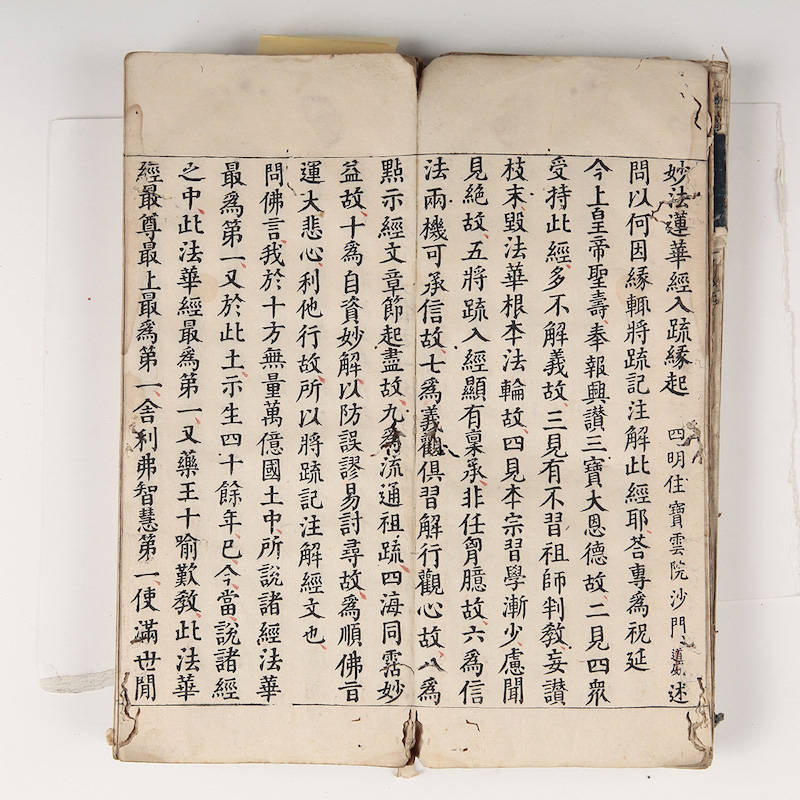 妙法蓮華經入疏緣起　四明住寶雲院沙門道威述
問以何因緣輒將疏記注解此經耶荅專爲祝延
今上皇帝聖壽奉報興讃三寶大恩德故二見四衆
受持此經多不解義故三見有不習祖師判教妄讃
枝末毀法華根本法輪故四見本宗習學漸少慮聞
見絕故五將疏入經顯有稟承非任胷臆故六爲信
法兩機可承信故七爲義觀俱習解行觀心故八爲
點示經文章節起盡故九爲流通祖疏四海同霑妙
益故十爲自資妙解以防誤謬易討尋故爲順佛言
運大悲心利他行故所以將疏記注解經文也
問佛言我於十方無量萬億國土中所說諸經法華
最爲第一又於此土示生四十餘年已今當說諸經
之中此法華經最爲第一又藥王十喻歎教此法華
經最尊最上最爲第一舍利弗智慧第一使滿世間